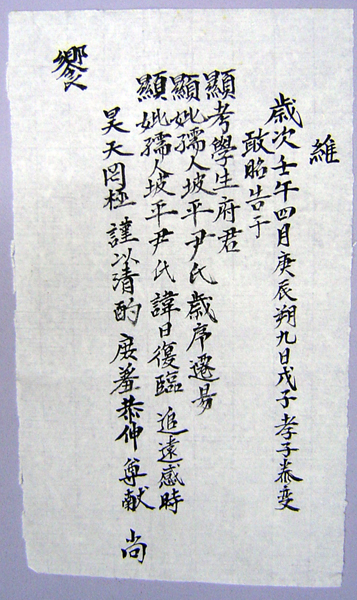 維
歲次壬午四月庚辰朔九日戊子孝子泰變
敢昭告于
顯考學生府君
顯妣孺人坡平尹氏歲序遷易
顯妣孺人坡平尹氏 諱日復臨 追遠感時
昊天罔極 謹以清酌 庶羞恭伸 尊献 尙
饗